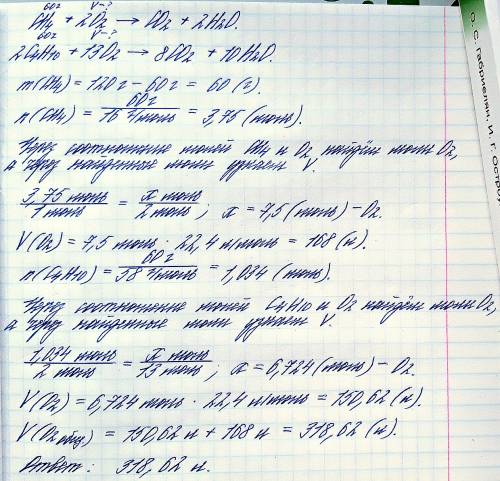 60г V-?
CH4 + 2O2 → CO2 + 2H2O.
60г V-?
2C4H10 + 13O2 → 8CO2 + 10H2O.
m(CH4) = 120г - 60г = 60 (г).
n(CH4) = 60г / 16 г/моль = 3,75 (моль).
Через соотношение молей CH4 и O2 найдём моли O2,
а через найденные моли узнаем V.
3,75 моль / 1 моль = x моль / 2 моль ; x = 7,5 (моль) - O2.
V(O2) = 7,5 моль · 22,4 л/моль = 168 (л).
n(C4H10) = 60г / 58 г/моль = 1,034 (моль).
Через соотношение молей C4H10 и O2 найдём моли O2,
а через найденные моли узнаем V.
1,034 моль / 2 моль = x моль / 13 моль ; x = 6,724 (моль) - O2.
V(O2) = 6,724 моль · 22,4 л/моль = 150,62 (л).
V(O2общ) = 150,62 л + 168 л = 318,62 (л).
Ответ: 318,62 л.
О. С. Габриелян, И. Г. Остроу